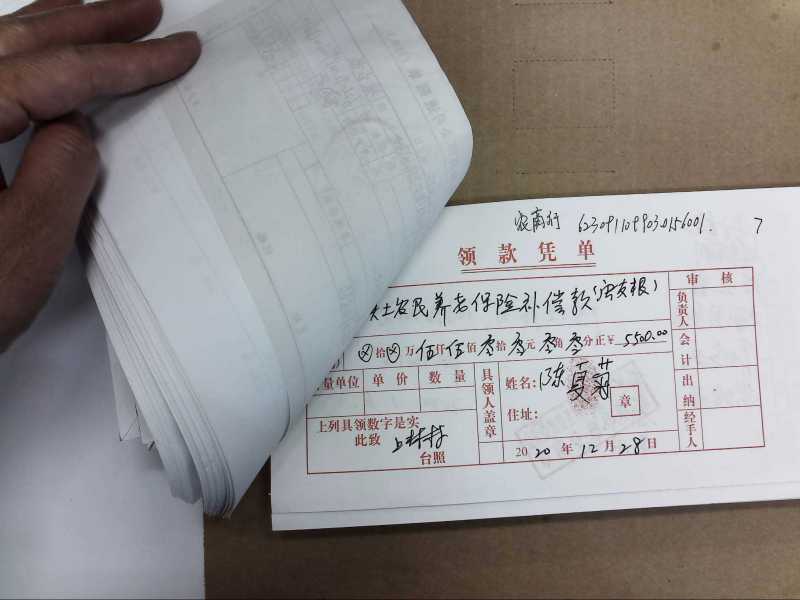 农商行 6230911089030156001. 7
领款凭单
失土农民养老保险补偿款
⊗拾⊗万伍仟伍佰零拾零元零角零分正¥5500.00
量单位 单价 数量
上列具领数字是实
此致 上林村
台照
具领人盖章
姓名:陈真
住址:
章
2020年12月28日
审核
负责人
会计
出纳
经手人